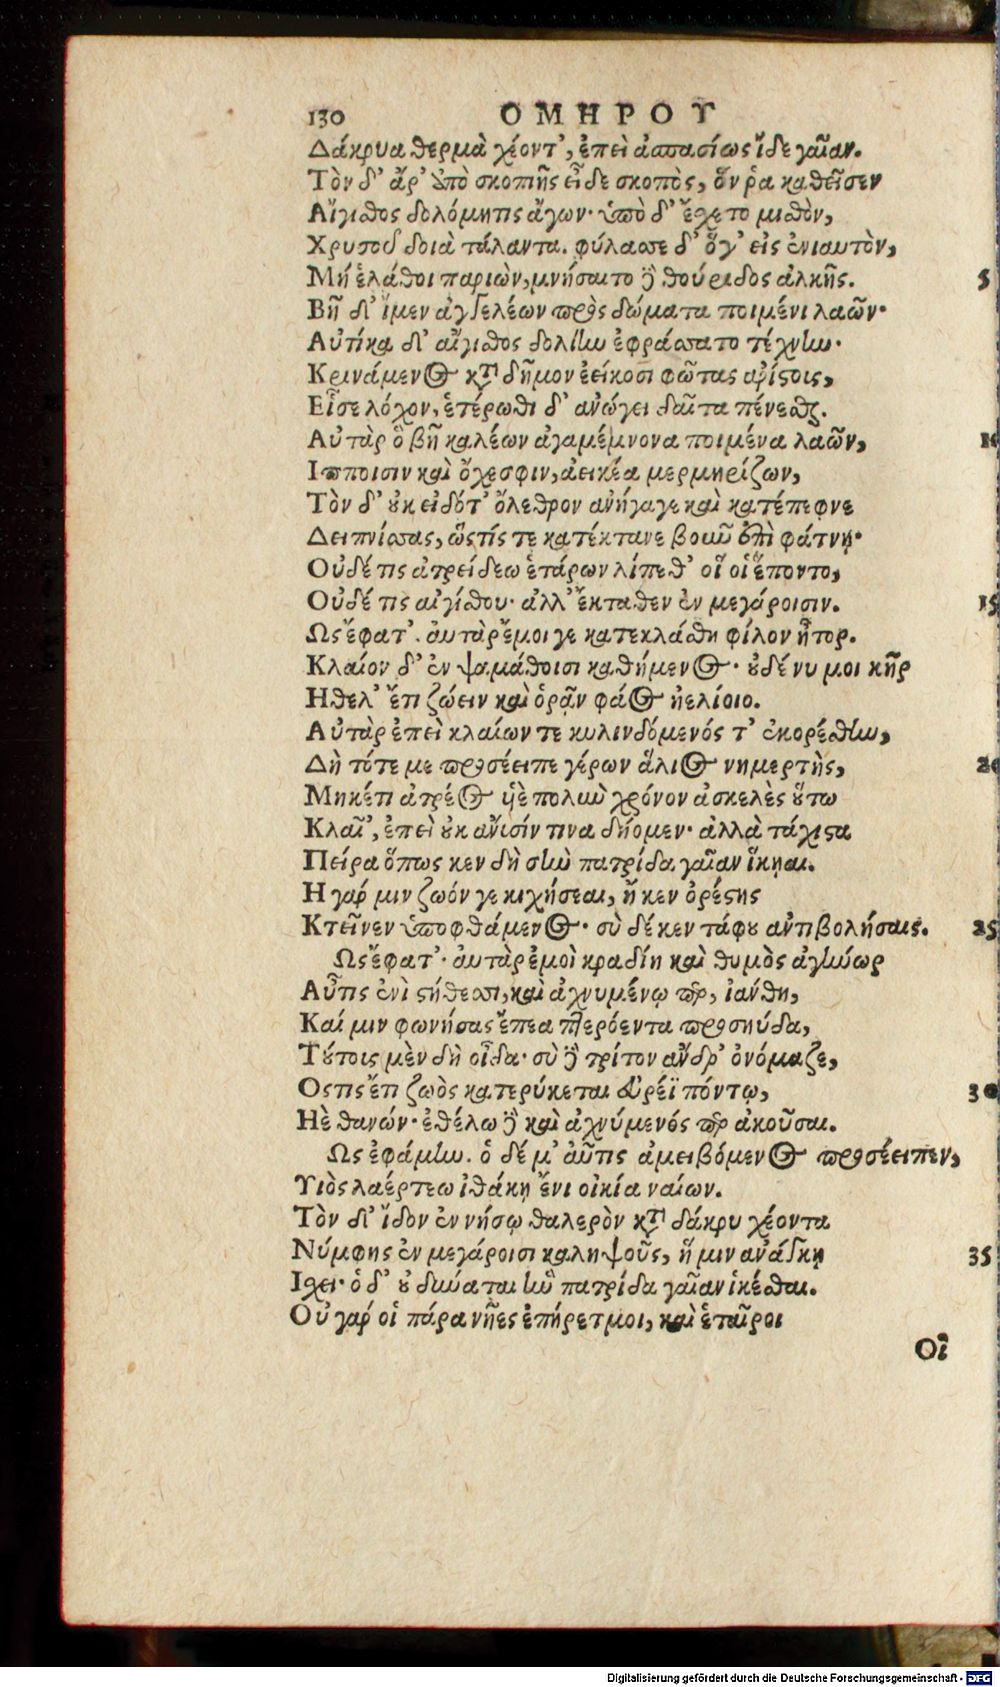 130 ΟΜΗΡΟΥ
Δάκρυα θερμὰ χέοντ', ἐπεὶ ἀσπασίως ἴδε γαῖαν.
Τὸν δ' ἄρ' ἀπὸ σκοπιῆς εἶδε σκοπὸς, ὅν ῥα καθεῖσεν
Αἴγισθος δολόμητις ἄγων· ὑπὸ δ' ἔσχετο μισθὸν,
Χρυσοῦ δοιὰ τάλαντα. φύλασσε δ' ὅγ' εἰς ἐνιαυτὸν,
Μή ἑ λάθοι παριὼν, μνήσαιτο δὲ θούριδος ἀλκῆς. 5
Βῆ δ' ἴμεν ἀγγελέων πρὸς δώματα ποιμένι λαῶν·
Αὐτίκα δ' αἴγισθος δολίην ἐφράσσατο τέχνην·
Κρινάμενος κατὰ δῆμον ἐείκοσι φῶτας ἀρίστοις,
Εἷσε λόχον, ἑτέρωθι δ' ἀνώγει δαῖτα πένεσθαι.
Αὐτὰρ ὃ βῆ καλέων ἀγαμέμνονα ποιμένα λαῶν, 1
Ιπποισιν καὶ ὄχεσφιν, ἀεικέα μερμηρίζων,
Τὸν δ' οὐκ εἰδότ' ὄλεθρον ἀνήγαγε καὶ κατέπεφνε
Δειπνίσσας, ὥς τίς τε κατέκτανε βοῦν ἐπὶ φάτνῃ·
Οὐδέ τις ἀτρείδεω ἑτάρων λίπεθ' οἵ οἱ ἕποντο,
Οὐδέ τις αἰγίσθου· ἀλλ' ἔκταθεν ἐν μεγάροισιν. 15
Ως ἔφατ'. αὐτὰρ ἔμοιγε κατεκλάσθη φίλον ἦτορ.
Κλαίον δ' ἐν ψαμάθοισι καθήμενος· οὐδέ νυ μοι κῆρ
Ηθελ' ἔτι ζώειν καὶ ὁρᾷν φάος ἠελίοιο.
Αὐτὰρ ἐπεὶ κλαίων τε κυλινδόμενός τ' ἐκορέσθην,
Δὴ τότε με προσέειπε γέρων ἅλιος νημερτὴς, 2
Μηκέτι ἀτρέος ἠὲ πολὺν χρόνον ἀσκελὲς οὕτω
Κλαῖ', ἐπεὶ οὐκ ἄνισίν τινα δήομεν· ἀλλὰ τάχιστα
Πείρα ὅπως κεν δὴ σὴν πατρίδα γαῖαν ἵκηαι.
Η γάρ μιν ζωόν γε κιχήσεαι, ἤ κεν ὀρέστης
Κτεῖνεν ὑποφθάμενος· σὺ δέ κεν τάφου ἀντιβολήσαις. 25
Ως ἔφατ'· αὐτὰρ ἐμοὶ κραδίη καὶ θυμὸς ἀγήνωρ
Αὖτις ἐνὶ στήθεσσι, καὶ ἀχνυμένῳ περ, ἰάνθη,
Καί μιν φωνήσας ἔπεα πτερόεντα προσηύδα,
Τούτοις μὲν δὴ οἶδα· σὺ δὲ τρίτον ἄνδρ' ὀνόμαζε,
Οστις ἔτι ζωὸς κατερύκεται εὐρέϊ πόντῳ, 30
Ηὲ θανών· ἐθέλω δὲ καὶ ἀχνύμενός περ ἀκοῦσαι.
Ως ἐφάμην. ὁ δέ μ' αὖτις ἀμειβόμενος προσέειπεν,
Υιὸς λαέρτεω ἰθάκῃ ἔνι οἰκία ναίων.
Τὸν δ' ἴδον ἐν νήσῳ θαλερὸν κατὰ δάκρυ χέοντα
Νύμφης ἐν μεγάροισι καλυψοῦς, ἥ μιν ἀνάγκῃ 35
Ισχει· ὁ δ' οὐ δύναται ἣν πατρίδα γαῖαν ἱκέσθαι.
Οὐ γάρ οἱ πάρα νῆες ἐπήρετμοι, καὶ ἑταῖροι
Οἵ
Digitalisierung gefördert durch die Deutsche Forschungsgemeinschaft - DFG